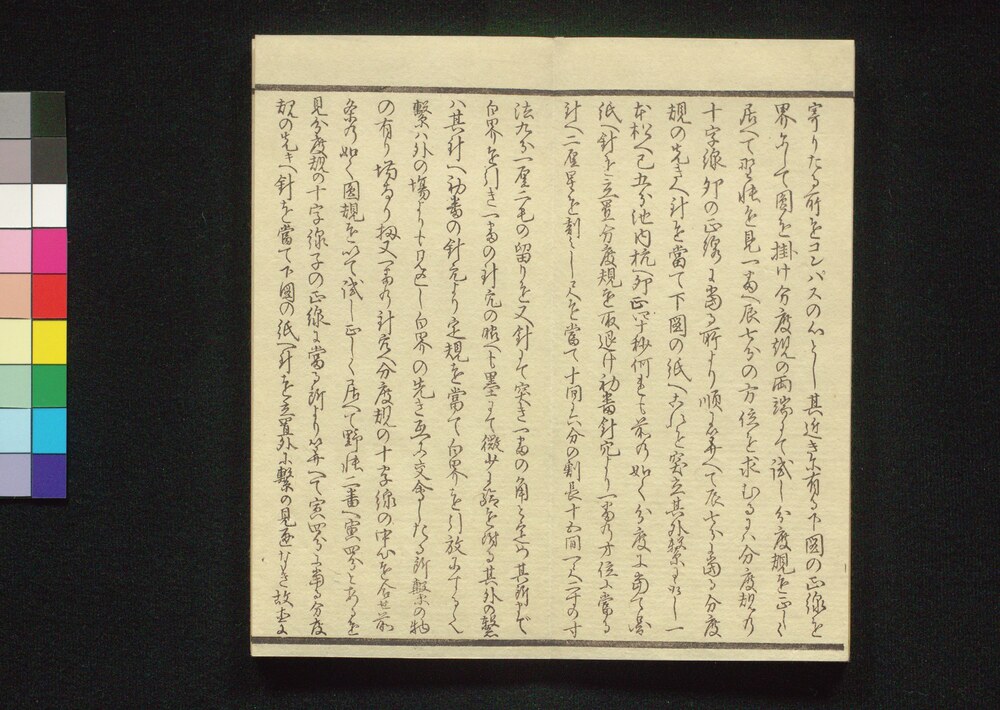 寄りたる所をコンパスの心とし其近き所有る下圖の正線を
界として圖を掛け分度規の両端にて試し分度規を正しく
居へて野帳を見一番へ辰七分の方位を求むるには分度規の
十字線卯の正線に當る所より順に算へて辰七分に當る分度
規の先きへ針を當て下圖の紙へ突立其外繋
本松へ巳五分池内杭へ卯正 何も前の如く分度に當て
紙へ針を立置分度規を取退け初番針穴より一番の方位に當る
針へ二厘星を割 を當て十間を六分の割長十五間 寸
法九分一厘二毛の留りを又針にて突き一番の角と定め其所まで
白界を引き一番の針穴の脇へも墨にて微少 を附る其外の繋
ハ其針へ初番の針穴より定規を當て白界を引放にする
繋ハ外の場より 見返し白界の先き互に交合したる所繋の物
の有り場なり扨又一番の針穴へ分度規の十字線の中心を合せ前
条の如く圖規を以て試し正しく居へて野帳二番へ寅四分とあるを
見分度規の十字線子の正線に當る所より算へて寅四分に當る分度
規の先きへ針を當て下圖の紙へ針を立置外に繋の見通なき故直に